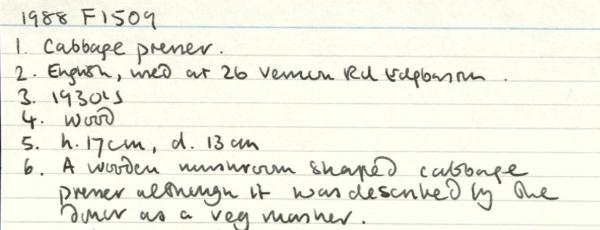 1988 F1509
1. Cabbage presser.
2. English, used at 26 Vernon Rd Edgbaston.
3. 1930's
4. Wood
5. h. 17cm, d. 13cm
6. A wooden mushroom shaped cabbage
presser although it was described by the
donor as a veg masher.